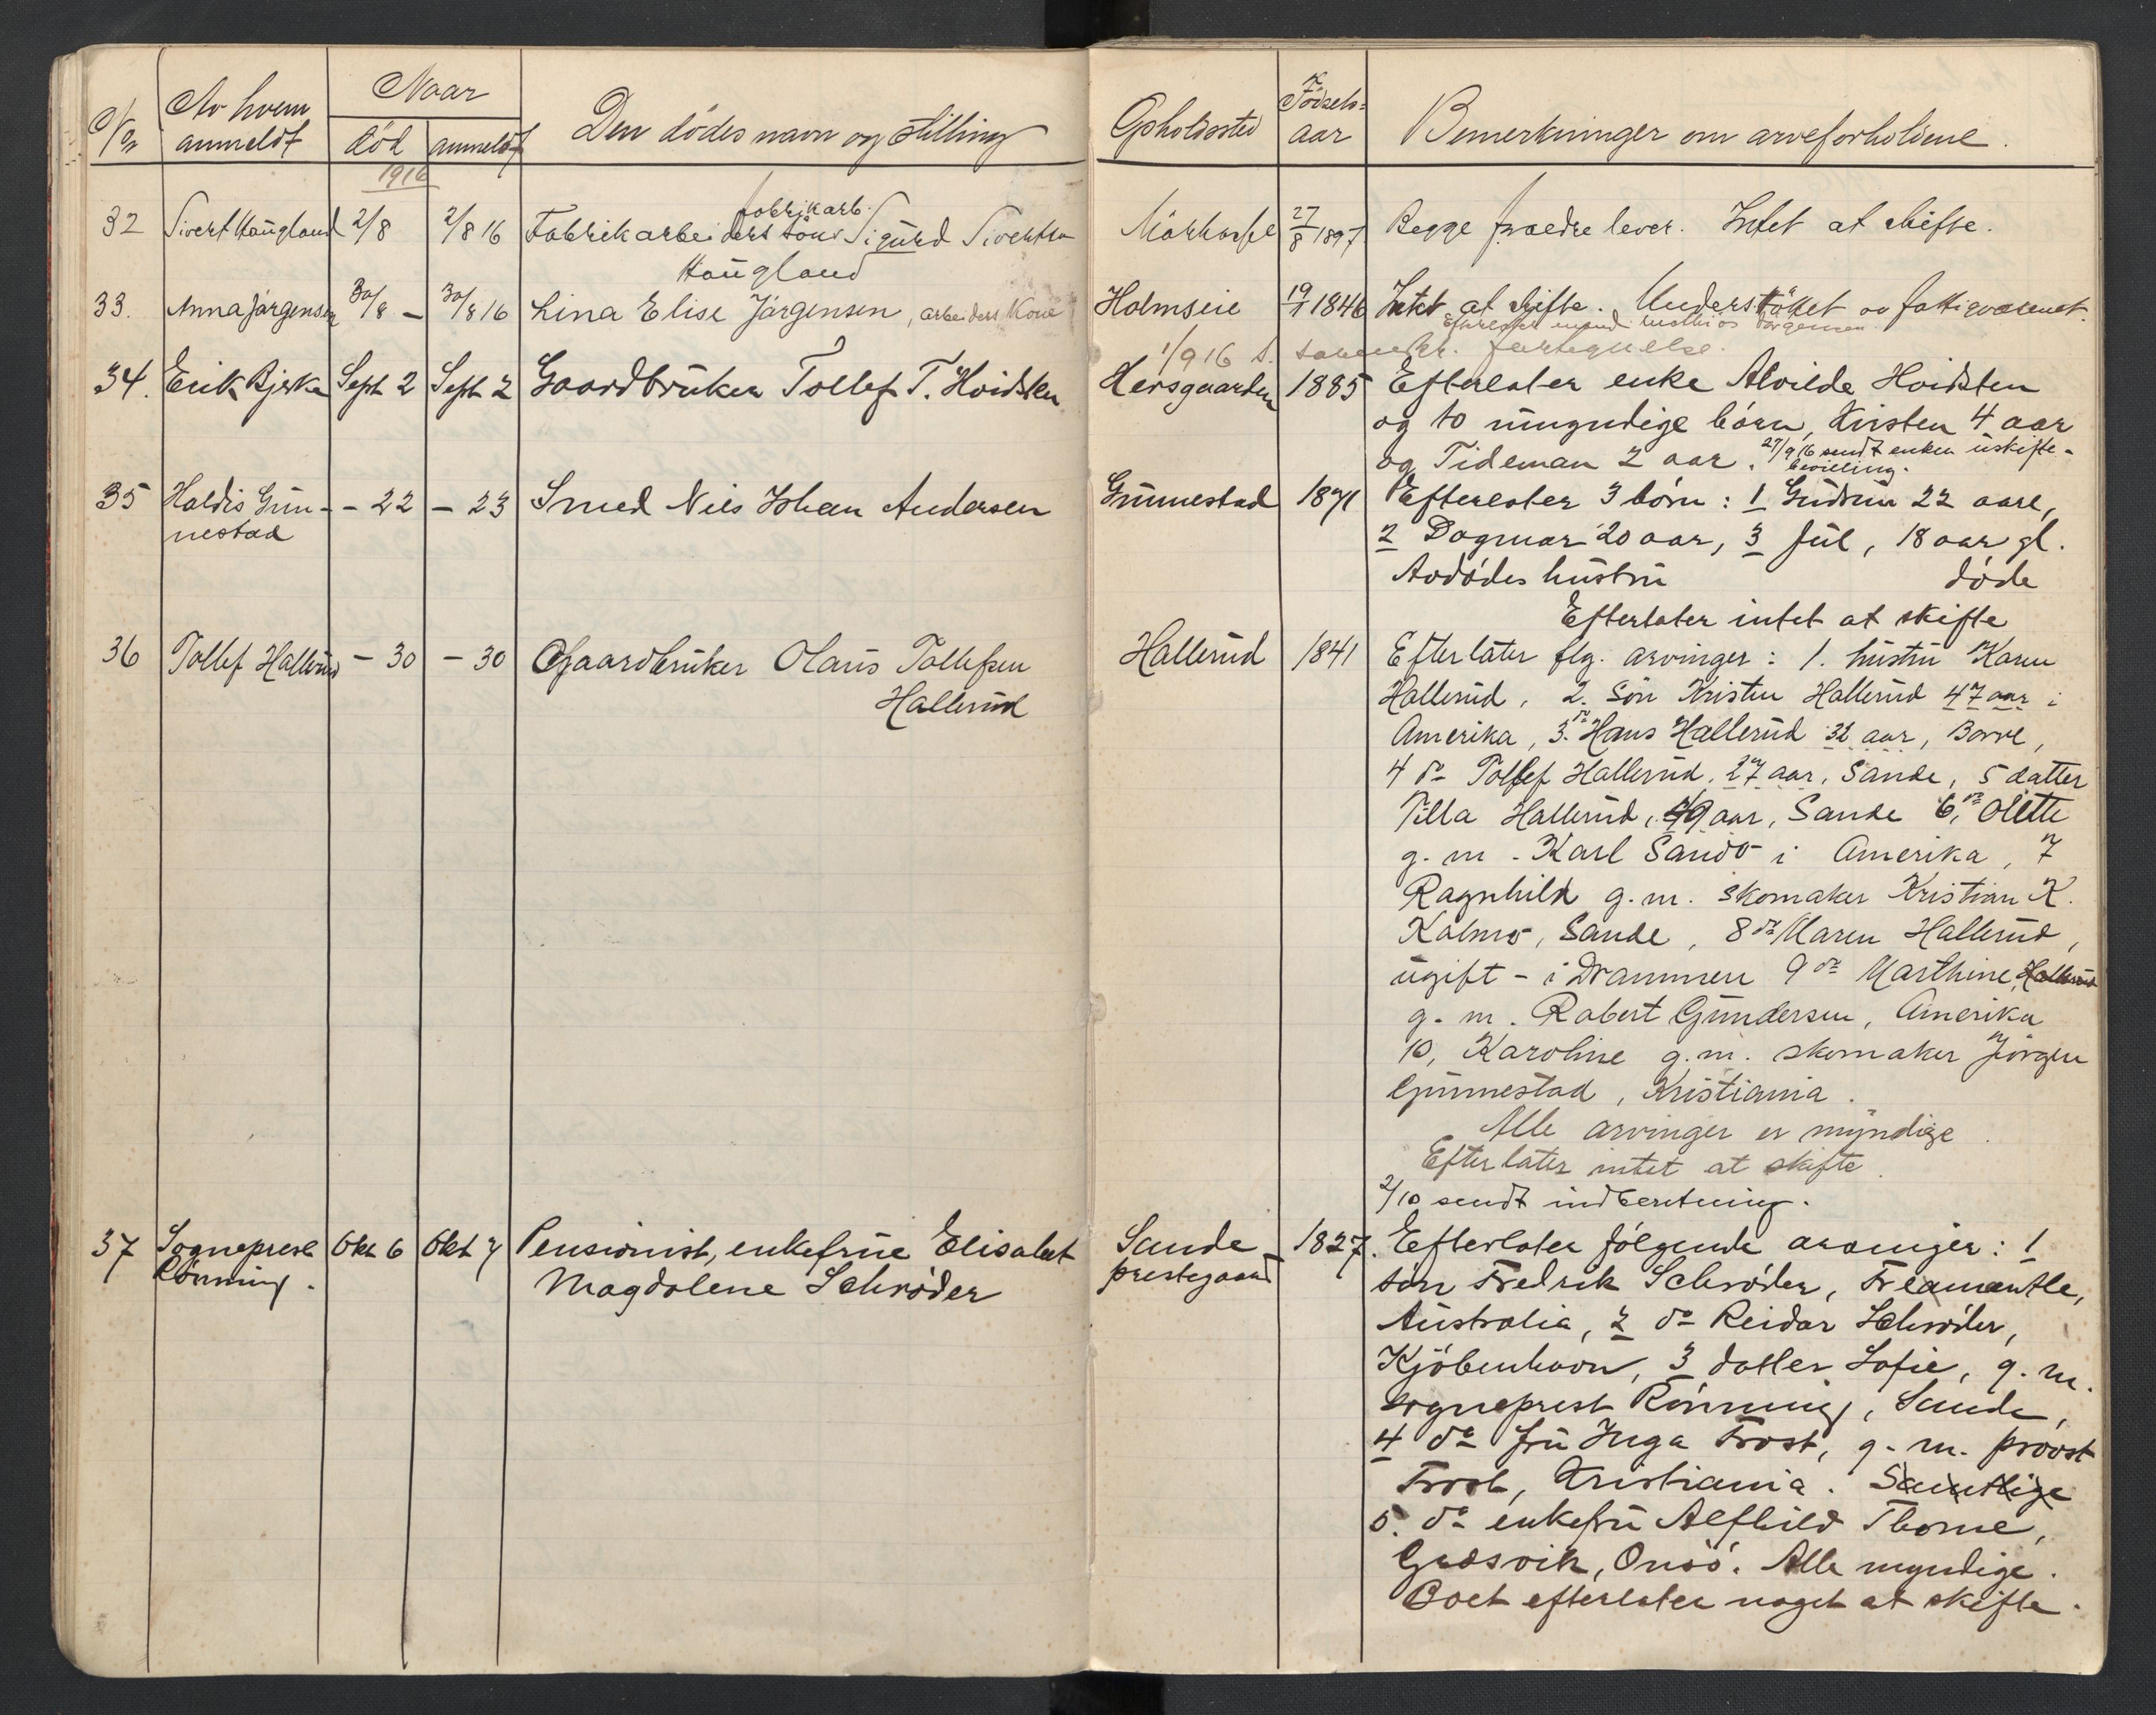 Nr. Av hvem anmeldt Naar Den dödes navn og stilling Opholdssted Födsels- aar Bemerkninger om arveforholdene.
död anmeldt
1916
32 Sivert Haugland 2/8 2/8 16 Fabrikarbeiders sön fabrikarb. Sigurd Sivertsen Haugland 27/8 1897 Begge foreldre lever. Intet at skifte.
33. Anna Jörgensen 30/8 – 30/8 16 Lina Elise Jörgensen, arbeiders kone Holmseie 19/1 1846 Intet at skifte. Understöttet av fattigvæsenet.
Efterlater mand Jörgensen
1/9 16 s. fortegnelse.
34. Erik Bjerke Sept 2 Sept 2 Gaardbruker Tollef T. Hoidsten Hersgaarden 1885 Efterlater enke Alvilde Hoidsten
og to umyndige börn, Kirsten 4 aar
og Tideman 2 aar. 27/9 16 sendt enken uskifte-
bevilling.
35 Haldis Gun- – 22 – 23 Smed Nils Johan Andersen Gunnestad 1871 Efterlater 3 börn: 1 Gudrun 22 aar,
nestad 2 Dagmar 20 aar, 3 Jul, 18 aar gl.
Avdödes hustru döde
Efterlater intet at skifte
36 Tollef Hallerud – 30 – 30 Gaardbruker Olaus Tollefsen Hallerud 1841 Efterlater flg. arvinger: 1. hustru Karen
Hallerud Hallerud, 2. Sön Kristen Hallerud 47 aar i
Amerika, 3. do Hans Hallerud 32 aar, Borre,
4 do Tollef Hallerud, 27 aar, Sande, 5 datter
Tilla Hallerud, 49 aar, Sande 6, do Olette
g. m. Karl Sandö i Amerika, 7
Ragnhild g. m. skomaker Kristian K.
Kolmo, Sande, 8 do Maren Hallerud,
ugift – i Drammen 9 do Marthine, Hallerud
g. m. Robert Gundersen, Amerika
10, Karoline g. m. skomaker Jörgen
Gunnestad, Kristiania.
Alle arvinger er myndige.
Efterlater intet at skifte.
2/10 sendt indberetning.
37 Sogneprest Okt 6 Okt 7 Pensionist, enkefrue Elisabet Sande 1827. Efterlater fölgende arvinger: 1
Rönning. Magdalene Schröder prestegaard sön Fredrik Schröder, Freamantle,
Australia, 2 do Reidar Schröder,
Kjöbenhavn, 3 datter Sofie, g. m.
sogneprest Rönning, Sande,
4 do fru Inga Frost, g. m. provst
Frost, Kristiania. Samtlige
5. do enkefru Alfhild Thorne,
Græsvik, Onsö. Alle myndige.
Boet efterlater noget at skifte.